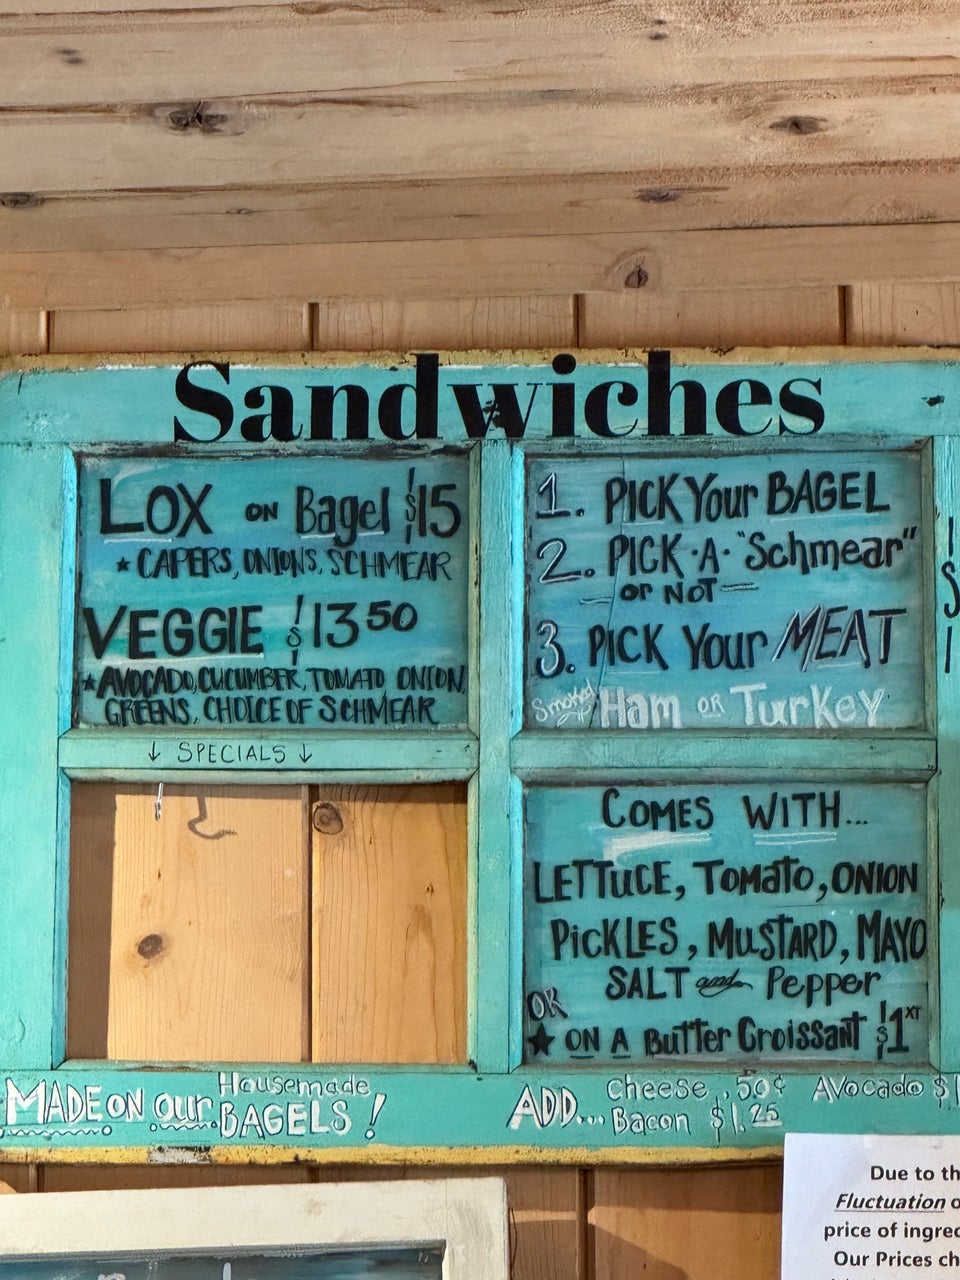 Sandwiches
LOX ON Bagel $15
★ CAPERS, ONIONS, SCHMEAR
VEGGIE $13 50
★ AVOCADO, CUCUMBER, TOMATO ONION,
GREENS, CHOICE OF SCHMEAR
↓ SPECIALS ↓
1. PICK Your BAGEL
2. PICK · A · "Schmear"
— or NOT —
3. PICK Your MEAT
Smoked Ham OR Turkey
COMES WITH...
LETTUCE, Tomato, ONION
PICKLES, MUSTARD, MAYO
SALT and Pepper
OR
★ ON A Butter Croissant $1 XT
MADE ON our Housemade
BAGELS!
ADD... Cheese .50¢ Avocado $1
Bacon $1.25
Due to th
Fluctuation o
price of ingred
Our Prices ch